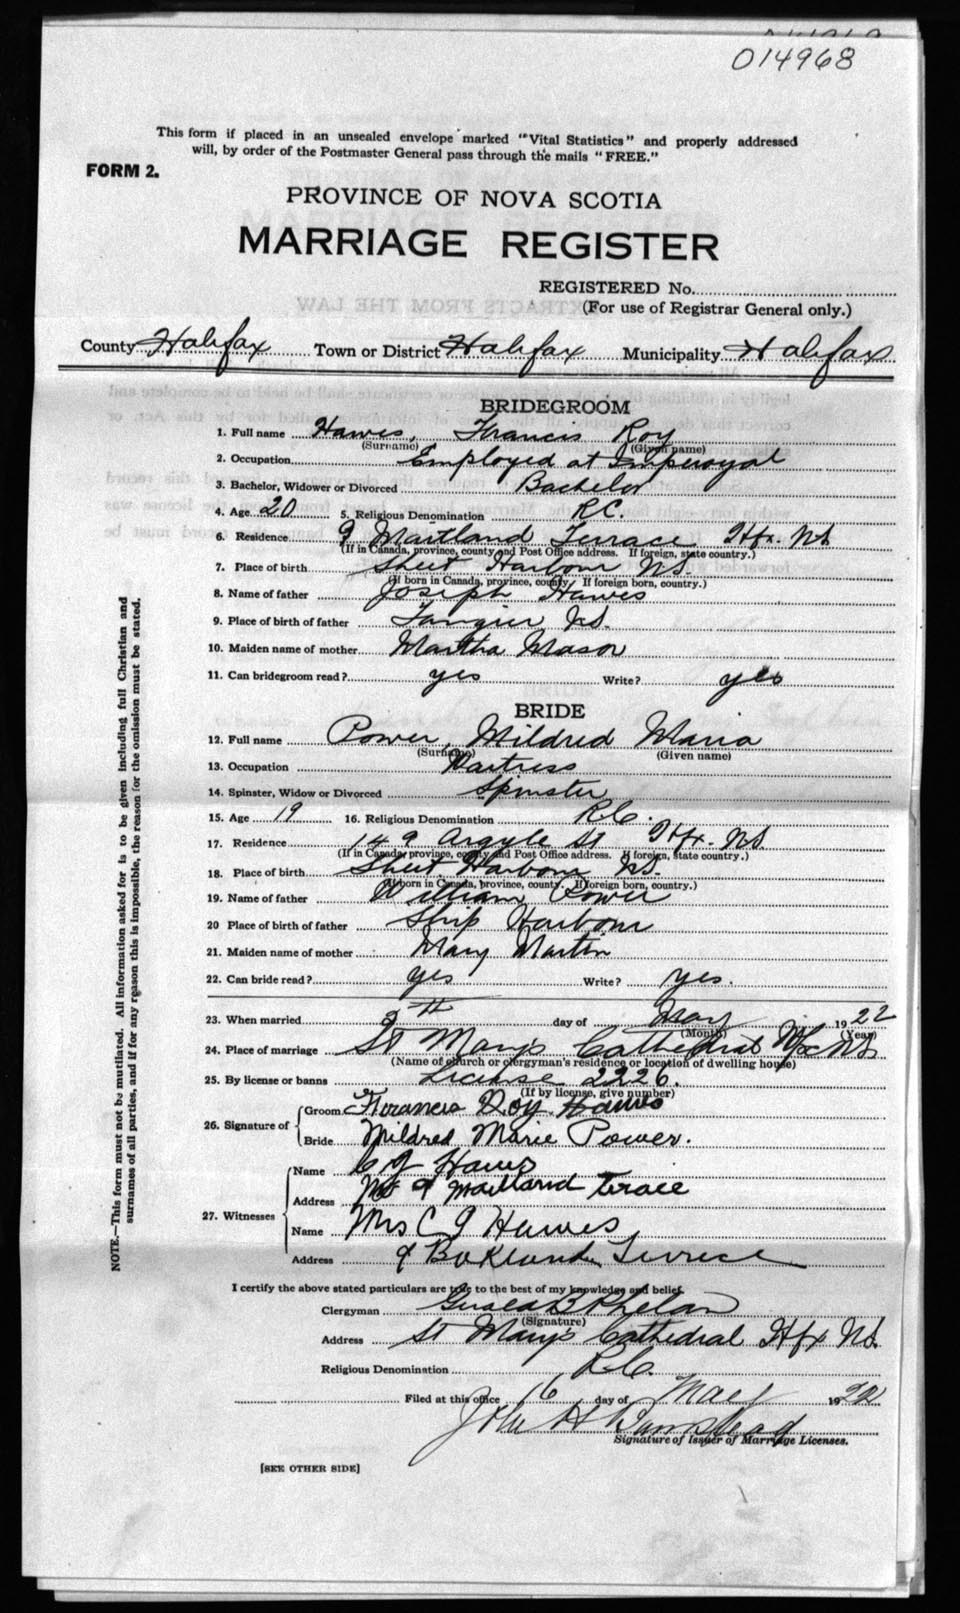 014968
This form if placed in an unsealed envelope marked "Vital Statistics" and properly addressed
will, by order of the Postmaster General pass through the mails "FREE."
FORM 2.
PROVINCE OF NOVA SCOTIA
MARRIAGE REGISTER
REGISTERED No.
(For use of Registrar General only.)
County Halifax Town or District Halifax Municipality Halifax
BRIDEGROOM
1. Full name Hawes, Francis Roy
(Surname) (Given name)
2. Occupation Employed at Imperoyal
3. Bachelor, Widower or Divorced Bachelor
4. Age 20 5. Religious Denomination R.C.
6. Residence 9 Maitland Terrace Hfx. NS
(If in Canada, province, county and Post Office address. If foreign, state country.)
7. Place of birth Sheet Harbour NS.
(If born in Canada, province, county. If foreign born, country.)
8. Name of father Joseph Hawes
9. Place of birth of father Tangier NS.
10. Maiden name of mother Martha Mason
11. Can bridegroom read? yes Write? yes
BRIDE
12. Full name Power, Mildred Maria
(Surname) (Given name)
13. Occupation Waitress
14. Spinster, Widow or Divorced Spinster
15. Age 19 16. Religious Denomination R.C.
17. Residence 149 Argyle St Hfx. NS
(If in Canada, province, county and Post Office address. If foreign, state country.)
18. Place of birth Sheet Harbour NS.
(If born in Canada, province, county. If foreign born, country.)
19. Name of father William Power
20 Place of birth of father Ship Harbour
21. Maiden name of mother Mary Martin
22. Can bride read? yes Write? yes.
23. When married day of May 1922
(Month) (Year)
24. Place of marriage St Mary's Cathedral Hfx NS
(Name of church or clergyman's residence or location of dwelling house)
25. By license or banns License 2226.
(If by license, give number)
26. Signature of Groom Francis Roy Hawes
Bride Mildred Marie Power.
27. Witnesses Name C J Hawes
Address 9 Maitland Terace
Name Mrs C J Hawes
Address 9
I certify the above stated particulars are true to the best of my knowledge and belief.
Clergyman Gerald B Phelan
(Signature)
Address St Mary's Cathedral Hfx NS.
Religious Denomination R.C.
Filed at this office 16 day of May 1922
John H
Signature of Issuer of Marriage Licenses.
[SEE OTHER SIDE]
NOTE.—This form must not be mutilated. All information asked for is to be given including full Christian and
surnames of all parties, and if for any reason this is impossible, the reason for the omission must be stated.